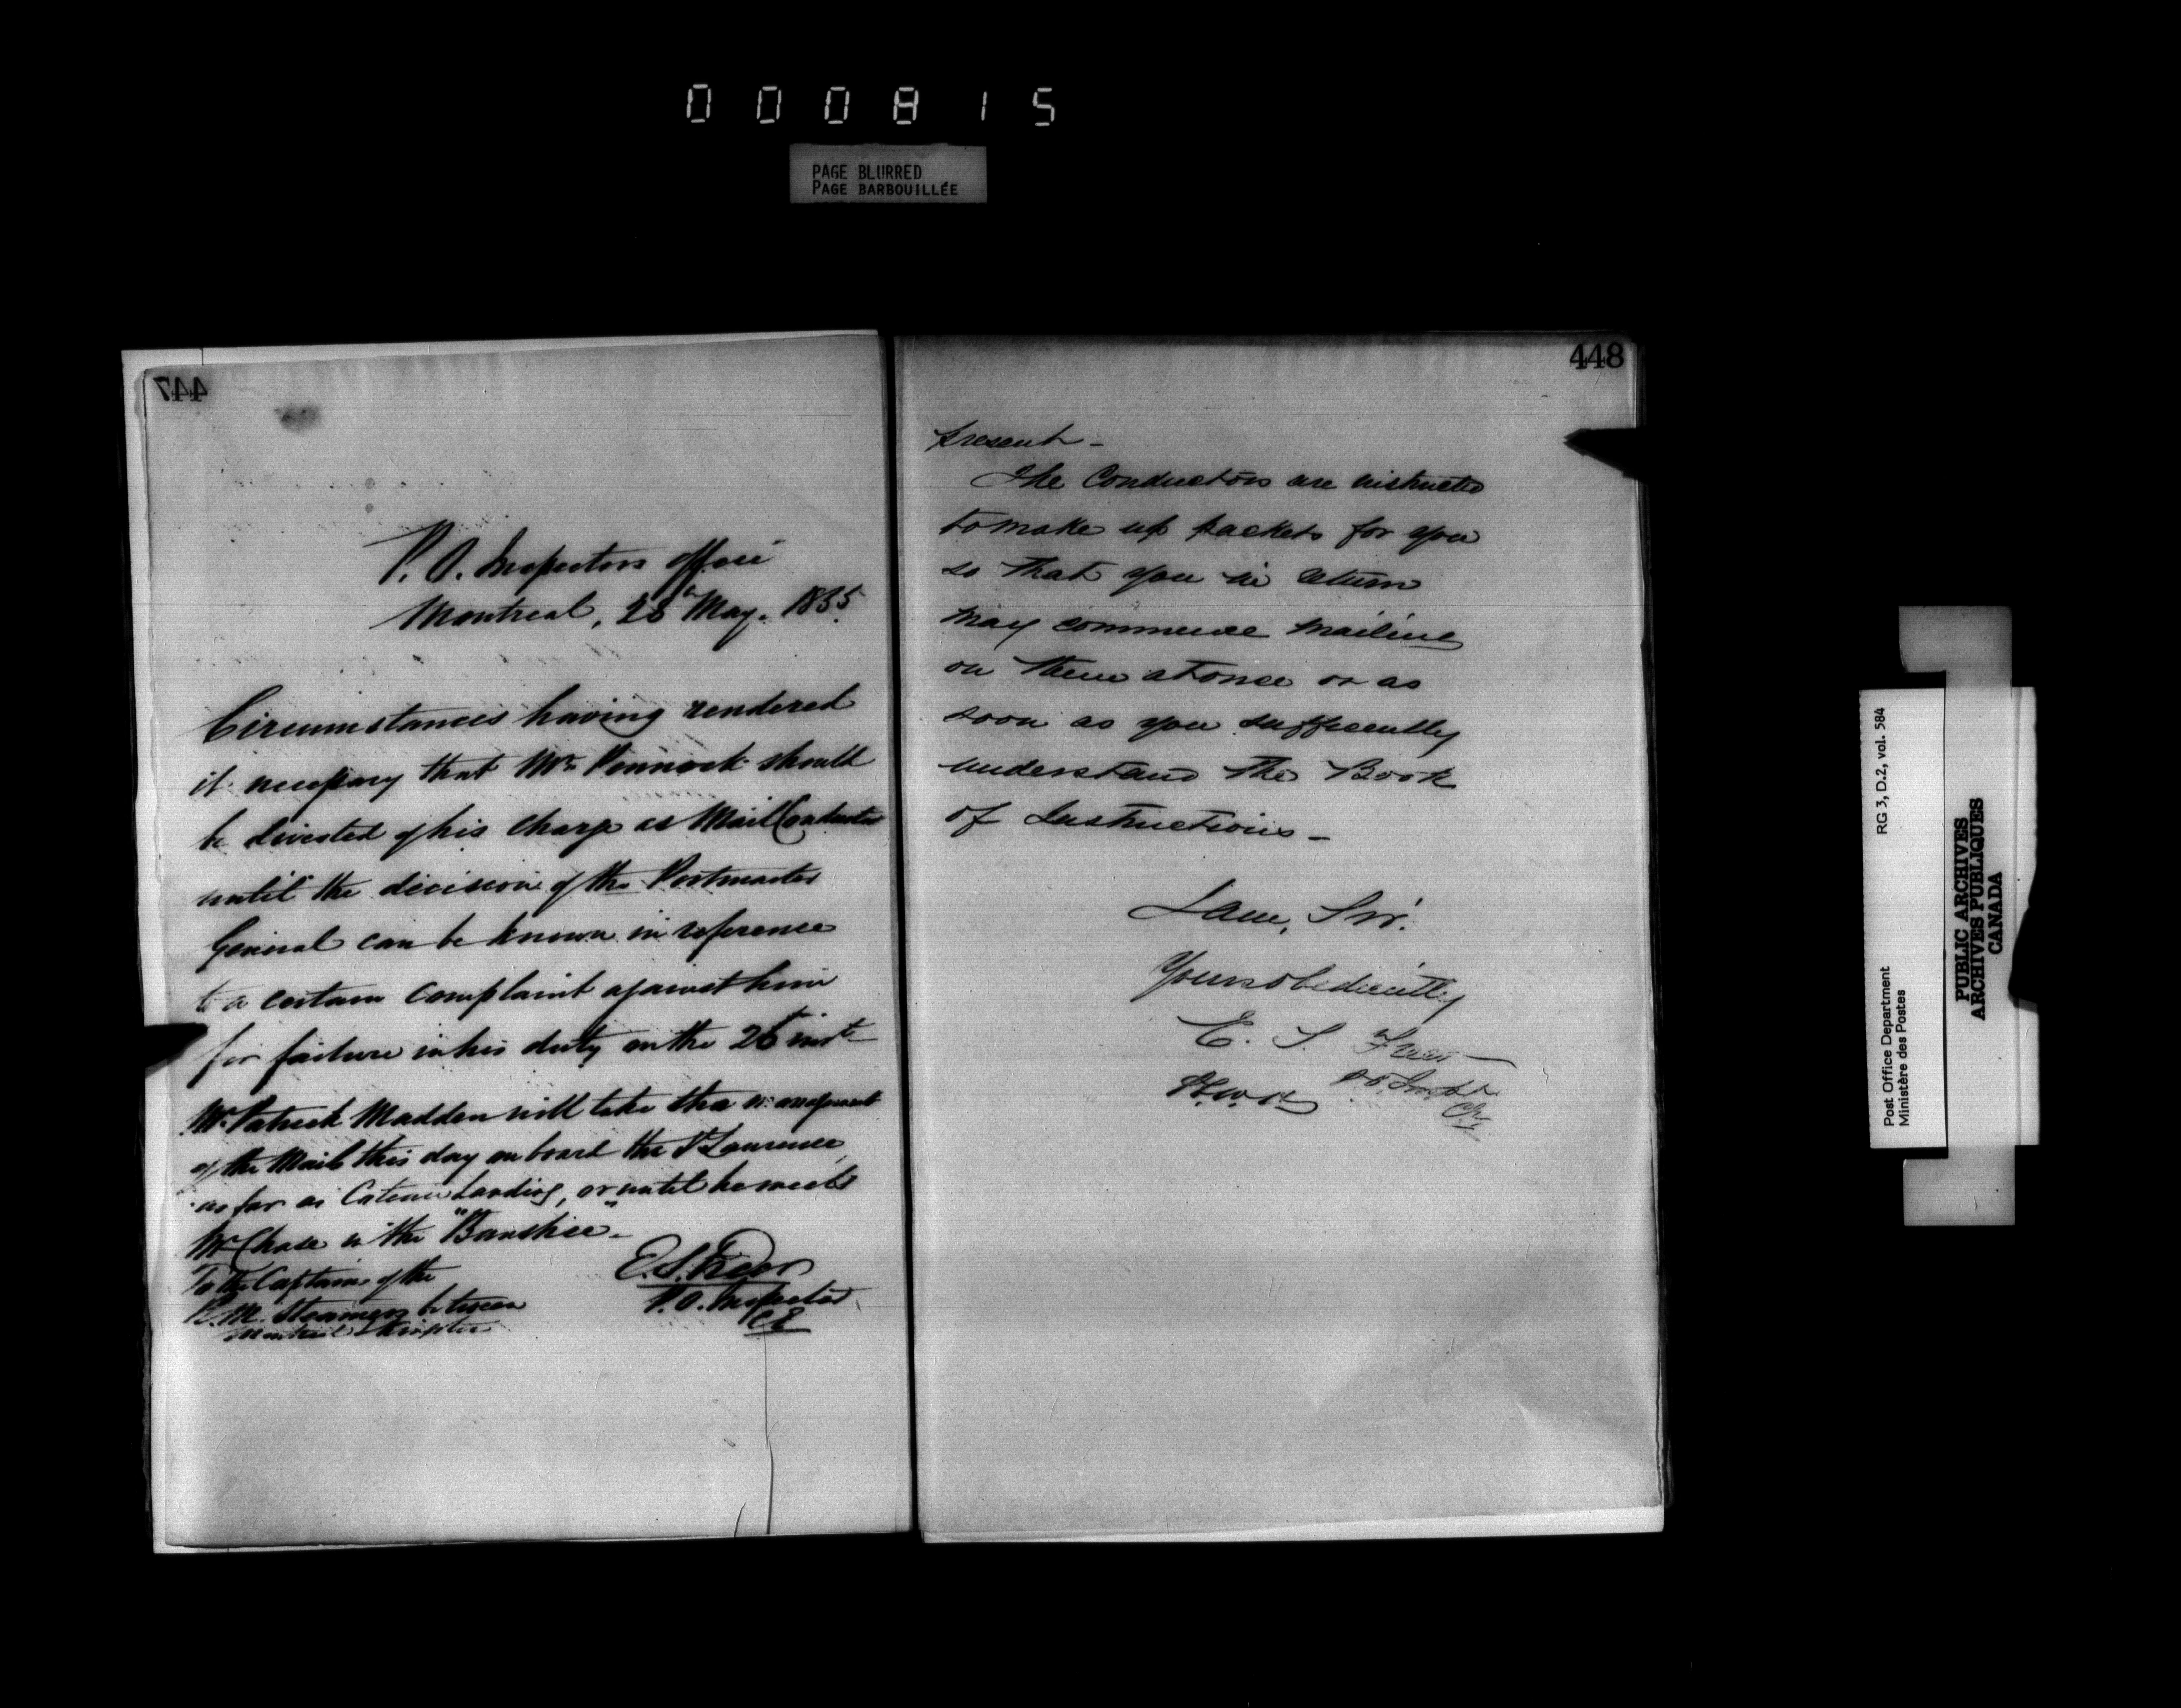 000815
PAGE BLURRED
PAGE BARBOUILLÉE
447
P. O. Inspectors office
Montreal, 28th May. 1855.
Circumstances having rendered
it necessary that Mr. Pennock should
be divested of his charge as Mail Conductor
until the decision of the Postmaster
General can be known in reference
to a certain complaint against him
for failure in his duty on the 26th inst
Mr. Patrick Madden will take the management
of the Mails this day on board the St Lawrence,
as far as Coteau Landing, or until he meets
Mr Chase in the "Banshee"-
To the Captains of the
R. M. Steamers between
Montreal &
E. S. Freer
P. O. Inspector
CE
448
present -
The Conductors are instructed
to make up packets for you
so that you in return
may commence mailing
on them at once or as
soon as you sufficiently
understand the Book
of Instructions -
I am, Sir.
Yours obediently
E. S. Freer
P.O. Inspr
Post Office Department
Ministère des Postes
RG 3, D.2, vol. 584
PUBLIC ARCHIVES
ARCHIVES PUBLIQUES
CANADA